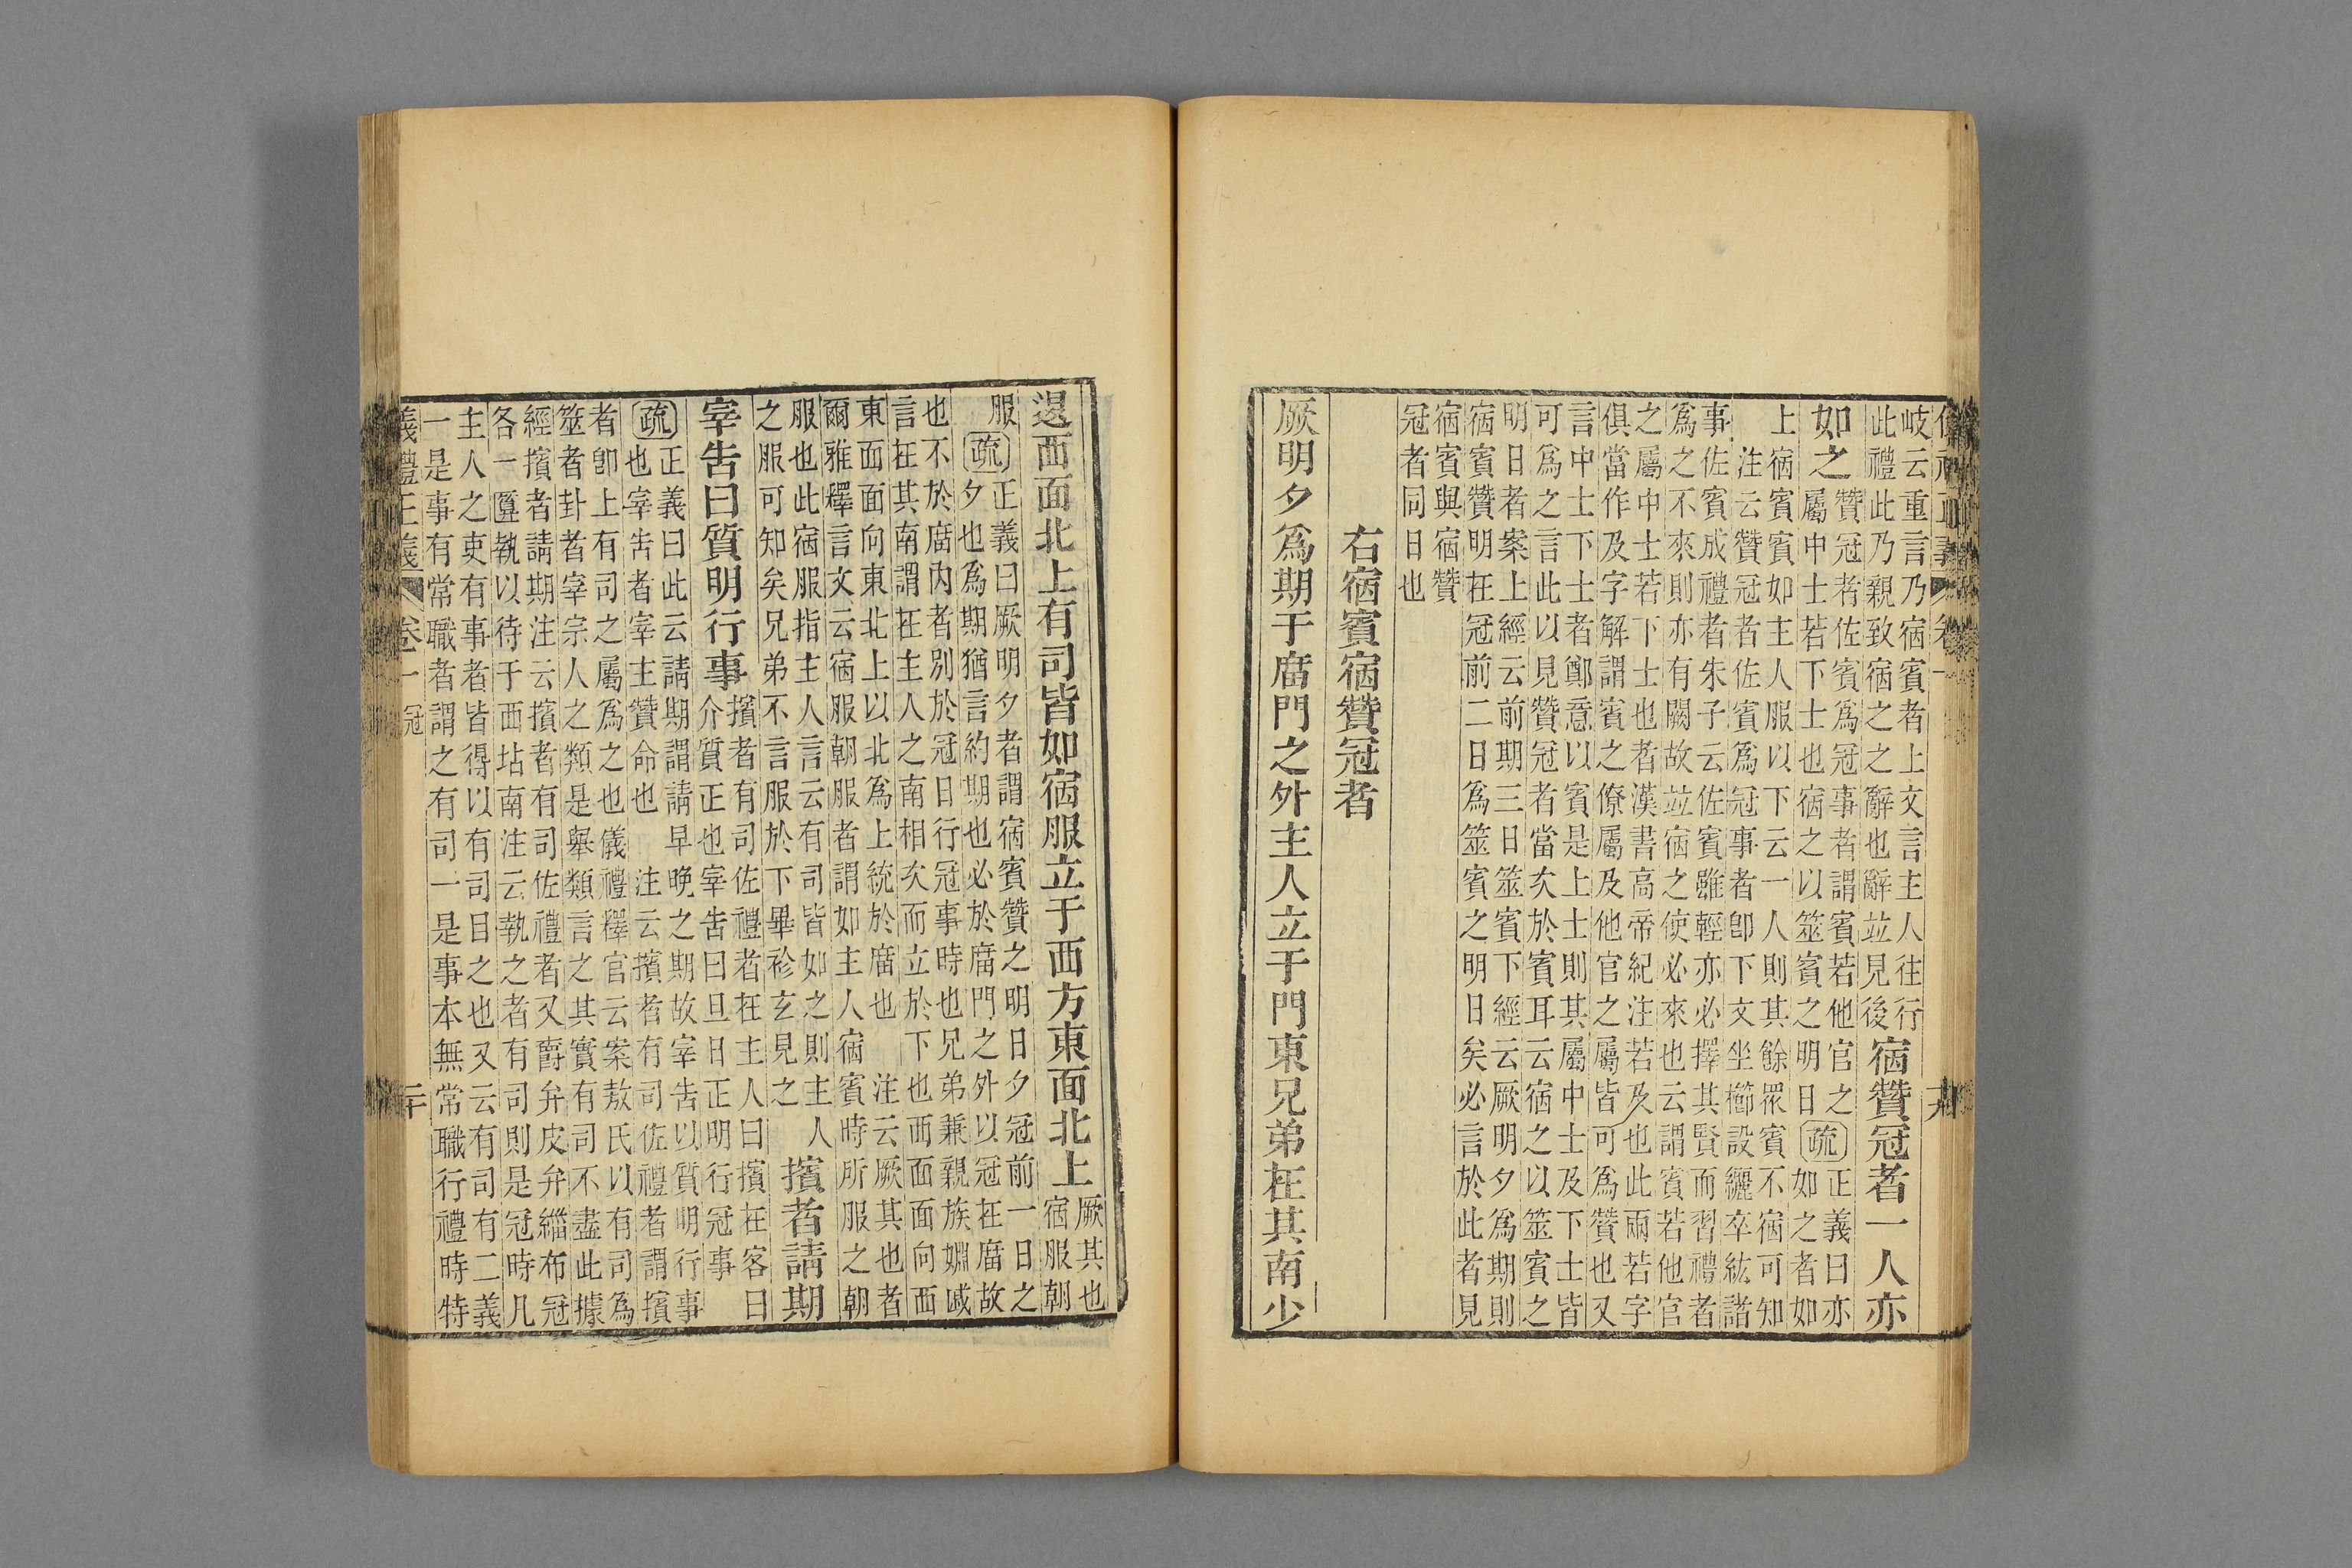 岐云重言乃宿賓者上文言主人往行
此禮此乃親致宿之之辭也辭竝見後
宿贊冠者一人亦
如之
贊冠者佐賓爲冠事者謂賓若他官之
屬中士若下士也宿之以筮賓之明日
疏
正義曰亦
如之者如
上宿賓賓如主人服以下云一人則其餘眾賓不宿可知
注云贊冠者佐賓爲冠事者卽下文坐櫛設纚卒紘諸
事佐賓成禮者朱子云佐賓雖輕亦必擇其賢而習禮者
爲之不來則亦有闕故竝宿之使必來也云謂賓若他官
之屬中士若下士也者漢書高帝紀注若及也此兩若字
俱當作及字解謂賓之僚屬及他官之屬皆可爲贊也又
言中士下士者鄭意以賓是上士則其屬中士及下士皆
可爲之言此以見贊冠者當次於賓耳云宿之以筮賓之
明日者案上經云前期三日筮賓下經云厥明夕爲期則
宿賓贊明在冠前二日爲筮賓之明日矣必言於此者見
宿賓與宿贊
冠者同日也
右宿賓宿贊冠者
厥明夕爲期于廟門之外主人立于門東兄弟在其南少
退西面北上有司皆如宿服立于西方東面北上
厥其也
宿服朝
服
疏
正義曰厥明夕者謂宿賓贊之明日夕冠前一日之
夕也爲期猶言約期也必於廟門之外以冠在廟故
也不於廟內者別於冠日行冠事時也兄弟兼親族婣戚
言在其南謂在主人之南相次而立於下也西面面向西
東面面向東北上以北爲上統於廟也 注云厥其也者
爾雅釋言文云宿服朝服者謂如主人宿賓時所服之朝
服也此宿服指主人言云有司皆如之則主人
之服可知矣兄弟不言服於下畢袗玄見之
擯者請期
宰告曰質明行事
擯者有司佐禮者在主人曰擯在客曰
介質正也宰告曰旦日正明行冠事
疏
正義曰此云請期謂請早晚之期故宰告以質明行事
也宰告者宰主贊命也 注云擯者有司佐禮者謂擯
者卽上有司之屬爲之也儀禮釋官云案敖氏以有司為
筮者卦者宰宗人之類是舉類言之其實有司不盡此據
經擯者請期注云擯者有司佐禮者又爵弁皮弁緇布冠
各一匴執以待于西坫南注云執之者有司則是冠時凡
主人之吏有事者皆得以有司目之也又云有司有二義
一是事有常職者謂之有司一是事本無常職行禮時特
義禮正義 卷一 冠